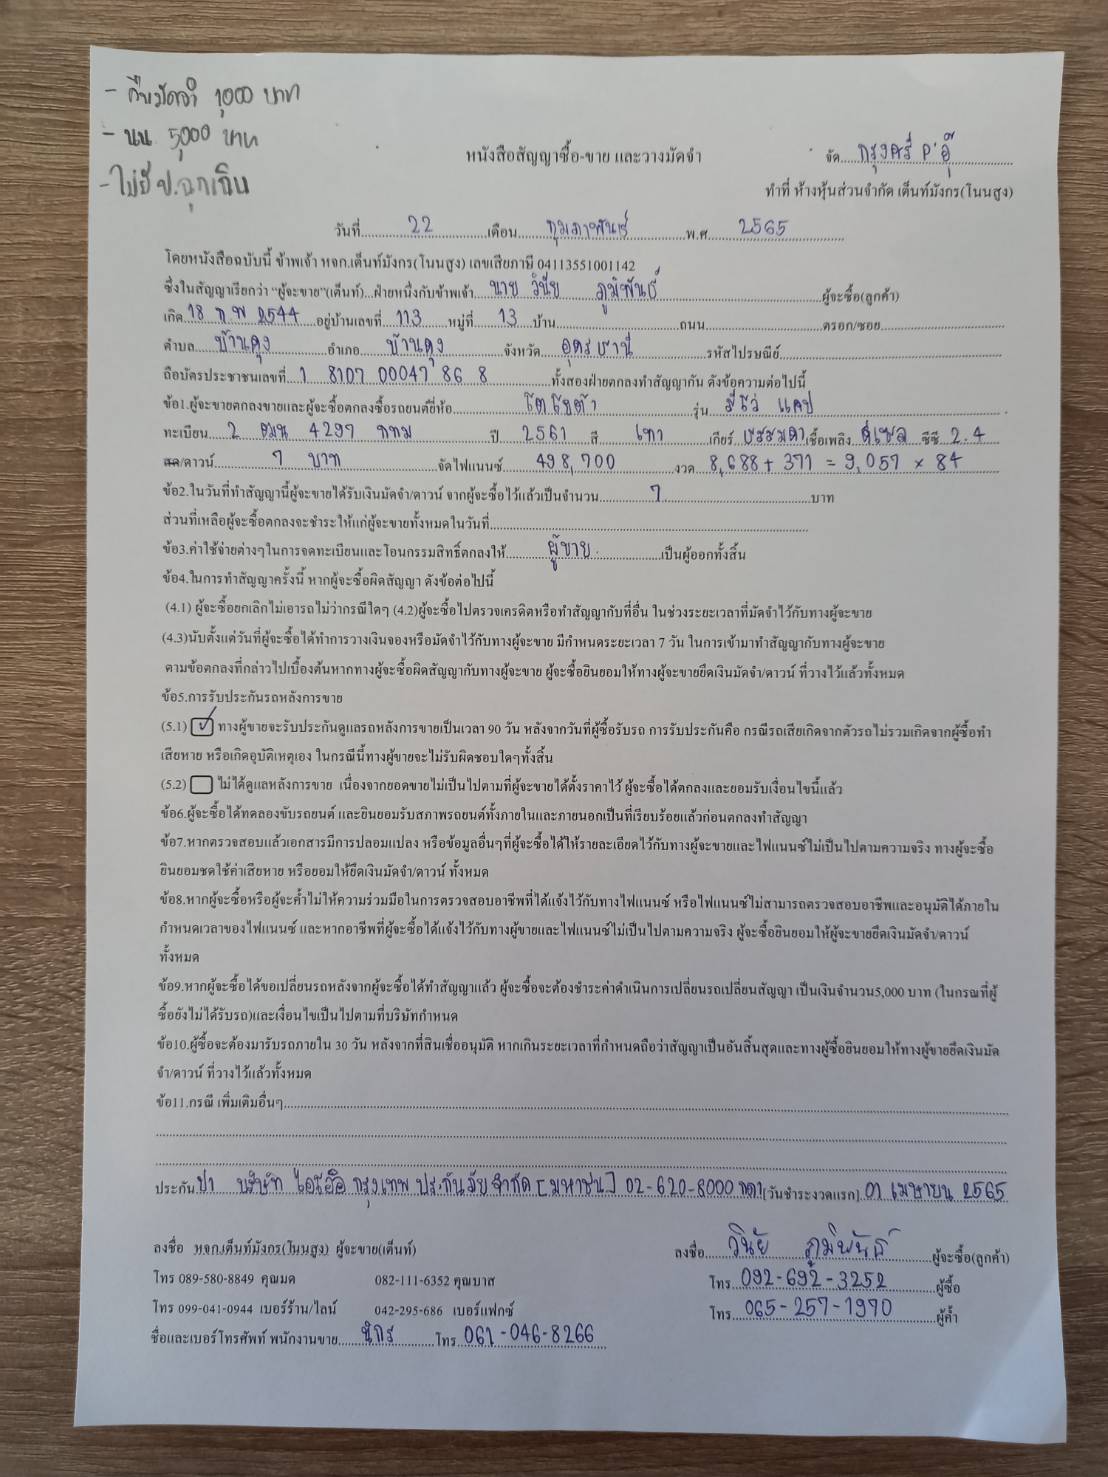 - คืนมัดจำ 1,000 บาท
- นน. 5,000 บาท
- ไม่มี ป.ฉุกเฉิน
หนังสือสัญญาซื้อ-ขาย และวางมัดจำ
จัด กรุงศรี P'อุ๊
ทำที่ ห้างหุ้นส่วนจำกัด เต็นท์มังกร(โนนสูง)
วันที่ 22 เดือน กุมภาพันธ์ พ.ศ. 2565
โดยหนังสือฉบับนี้ ข้าพเจ้า หจก.เต็นท์มังกร(โนนสูง) เลขเสียภาษี 04113551001142
ซึ่งในสัญญาเรียกว่า "ผู้จะขาย"(เต็นท์)...ฝ่ายหนึ่งกับข้าพเจ้า นาย วินัย ภูมิพันธ์ ผู้จะซื้อ(ลูกค้า)
เกิด 18 ก.พ 2544 อยู่บ้านเลขที่ 113 หมู่ที่ 13 บ้าน ถนน ตรอก/ซอย
ตำบล บ้านดุง อำเภอ บ้านดุง จังหวัด อุดรธานี รหัสไปรษณีย์
ถือบัตรประชาชนเลขที่ 1 8107 00047 86 8 ทั้งสองฝ่ายตกลงทำสัญญากัน ดังข้อความต่อไปนี้
ข้อ1.ผู้จะขายตกลงขายและผู้จะซื้อตกลงซื้อรถยนต์ยี่ห้อ โตโยต้า รุ่น รีโว่ แคป
ทะเบียน 2 ฒน 4297 กทม ปี 2561 สี เทา เกียร์ ธรรมดา เชื้อเพลิง ดีเซล ซีซี 2.4
สด/ดาวน์ 7 บาท จัดไฟแนนซ์ 498,700 งวด 8,688 + 371 = 9,057 x 84
ข้อ2.ในวันที่ทำสัญญานี้ผู้จะขายได้รับเงินมัดจำ/ดาวน์ จากผู้จะซื้อไว้แล้วเป็นจำนวน 7 บาท
ส่วนที่เหลือผู้จะซื้อตกลงจะชำระให้แก่ผู้จะขายทั้งหมดในวันที่
ข้อ3.ค่าใช้จ่ายต่างๆในการจดทะเบียนและโอนกรรมสิทธิ์ตกลงให้ ผู้ขาย เป็นผู้ออกทั้งสิ้น
ข้อ4.ในการทำสัญญาครั้งนี้ หากผู้จะซื้อผิดสัญญา ดังข้อต่อไปนี้
(4.1) ผู้จะซื้อยกเลิกไม่เอารถไม่ว่ากรณีใดๆ (4.2)ผู้จะซื้อไปตรวจเครดิตหรือทำสัญญากับที่อื่น ในช่วงระยะเวลาที่มัดจำไว้กับทางผู้จะขาย
(4.3)นับตั้งแต่วันที่ผู้จะซื้อได้ทำการวางเงินจองหรือมัดจำไว้กับทางผู้จะขาย มีกำหนดระยะเวลา 7 วัน ในการเข้ามาทำสัญญากับทางผู้จะขาย
ตามข้อตกลงที่กล่าวไปเบื้องต้นหากทางผู้จะซื้อผิดสัญญากับทางผู้จะขาย ผู้จะซื้อยินยอมให้ทางผู้จะขายยึดเงินมัดจำ/ดาวน์ ที่วางไว้แล้วทั้งหมด
ข้อ5.การรับประกันรถหลังการขาย
(5.1) ☑ ทางผู้ขายจะรับประกันดูแลรถหลังการขายเป็นเวลา 90 วัน หลังจากวันที่ผู้ซื้อรับรถ การรับประกันคือ กรณีรถเสียเกิดจากตัวรถไม่รวมเกิดจากผู้ซื้อทำ
เสียหาย หรือเกิดอุบัติเหตุเอง ในกรณีนี้ทางผู้ขายจะไม่รับผิดชอบใดๆทั้งสิ้น
(5.2) ☐ ไม่ได้ดูแลหลังการขาย เนื่องจากยอดขายไม่เป็นไปตามที่ผู้จะขายได้ตั้งราคาไว้ ผู้จะซื้อได้ตกลงและยอมรับเงื่อนไขนี้แล้ว
ข้อ6.ผู้จะซื้อได้ทดลองขับรถยนต์ และยินยอมรับสภาพรถยนต์ทั้งภายในและภายนอกเป็นที่เรียบร้อยแล้วก่อนตกลงทำสัญญา
ข้อ7.หากตรวจสอบแล้วเอกสารมีการปลอมแปลง หรือข้อมูลอื่นๆที่ผู้จะซื้อได้ให้รายละเอียดไว้กับทางผู้จะขายและไฟแนนซ์ไม่เป็นไปตามความจริง ทางผู้จะซื้อ
ยินยอมชดใช้ค่าเสียหาย หรือยอมให้ยึดเงินมัดจำ/ดาวน์ ทั้งหมด
ข้อ8.หากผู้จะซื้อหรือผู้จะค้ำไม่ให้ความร่วมมือในการตรวจสอบอาชีพที่ได้แจ้งไว้กับทางไฟแนนซ์ หรือไฟแนนซ์ไม่สามารถตรวจสอบอาชีพและอนุมัติได้ภายใน
กำหนดเวลาของไฟแนนซ์ และหากอาชีพที่ผู้จะซื้อได้แจ้งไว้กับทางผู้ขายและไฟแนนซ์ไม่เป็นไปตามความจริง ผู้จะซื้อยินยอมให้ผู้จะขายยึดเงินมัดจำ/ดาวน์
ทั้งหมด
ข้อ9.หากผู้จะซื้อได้ขอเปลี่ยนรถหลังจากผู้จะซื้อได้ทำสัญญาแล้ว ผู้จะซื้อจะต้องชำระค่าดำเนินการเปลี่ยนรถเปลี่ยนสัญญา เป็นเงินจำนวน5,000 บาท (ในกรณที่ผู้
ซื้อยังไม่ได้รับรถ)และเงื่อนไขเป็นไปตามที่บริษัทกำหนด
ข้อ10.ผู้ซื้อจะต้องมารับรถภายใน 30 วัน หลังจากที่สินเชื่ออนุมัติ หากเกินระยะเวลาที่กำหนดถือว่าสัญญาเป็นอันสิ้นสุดและทางผู้ซื้อยินยอมให้ทางผู้ขายยึดเงินมัด
จำ/ดาวน์ ที่วางไว้แล้วทั้งหมด
ข้อ11.กรณี เพิ่มเติมอื่นๆ
ประกัน ป1 บริษัท ไอโออิ กรุงเทพ ประกันภัย จำกัด [มหาชน] 02-620-8000 กด1 (วันชำระงวดแรก) 01 เมษายน 2565
ลงชื่อ หจก.เต็นท์มังกร(โนนสูง) ผู้จะขาย(เต็นท์)
ลงชื่อ วินัย ภูมิพันธ์ ผู้จะซื้อ(ลูกค้า)
โทร 089-580-8849 คุณมด 082-111-6352 คุณบาส
โทร 092-692-3252 ผู้ซื้อ
โทร 099-041-0944 เบอร์ร้าน/ไลน์ 042-295-686 เบอร์แฟกซ์
โทร 065-257-1970 ผู้ค้ำ
ชื่อและเบอร์โทรศัพท์ พนักงานขาย นิกร โทร 061-046-8266